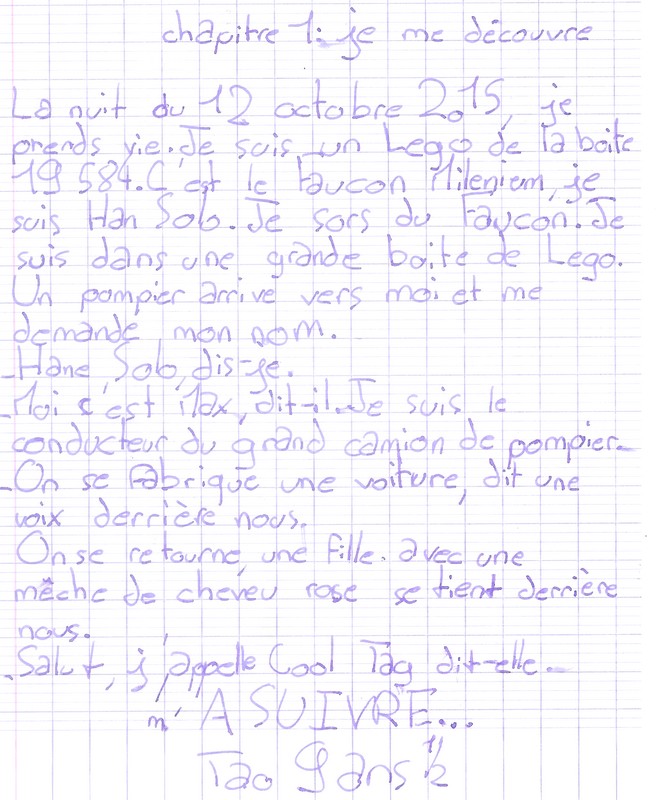 chapitre 1: je me découvre
La nuit du 12 octobre 2015, je
prends vie. Je suis un Lego de la boite
19 584. C'est le Faucon Milenium, je
suis Han Solo. Je sors du Faucon. Je
suis dans une grande boite de Lego.
Un pompier arrive vers moi et me
demande mon nom.
_Hane Solo, dis-je.
_Moi c'est Max, dit-il. Je suis le
conducteur du grand camion de pompier_
_On se fabrique une voiture, dit une
voix derrière nous.
On se retourne, une fille. avec une
mêche de cheveu rose se tient derrière
nous.
_Salut, j'appelle Cool Tag dit-elle._
m' A SUIVRE...
Tao 9 ans 1/2